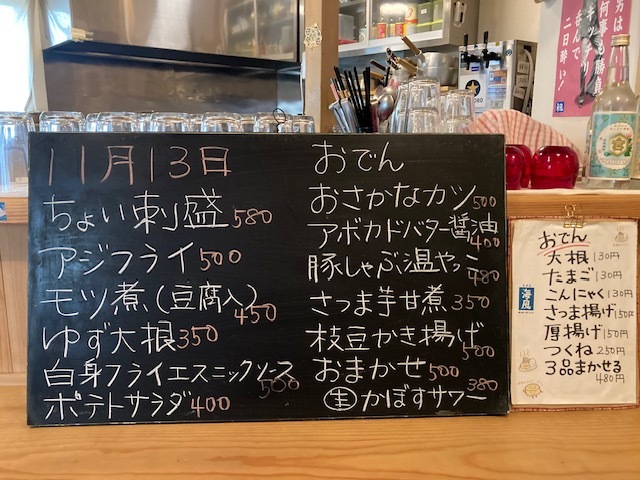 11月13日
ちょい刺盛 580
アジフライ 500
モツ煮(豆腐入) 450
ゆず大根 350
白身フライエスニックソース 500
ポテトサラダ 400
おでん
おさかなカツ 500
アボカドバター醤油 400
豚しゃぶ温やっこ 480
さつま芋甘煮 350
枝豆かき揚げ 500
おまかせ 500
生かぼすサワー 380
おでん
大根 130円
たまご 130円
こんにゃく 130円
さつま揚げ 150円
厚揚げ 150円
つくね 250円
3品まかせる 480円
海風
男は
何事も勝負
キンミヤ
呑んで
二日酔い!